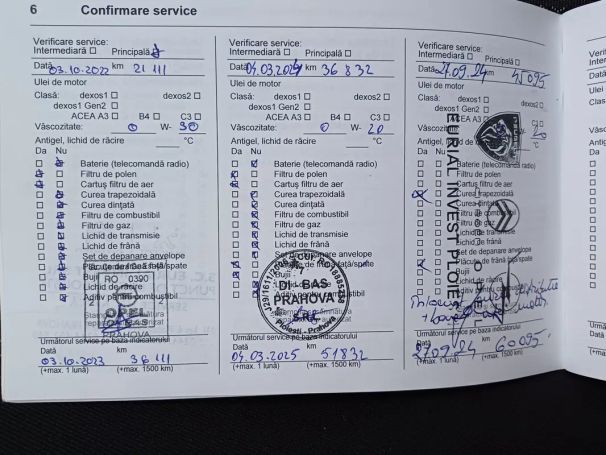 6 Confirmare service
Verificare service:
Intermediară Principală
Dată 03.10.2022 km 21 111
Ulei de motor
Clasă: dexos1 dexos2
dexos1 Gen2
ACEA A3 B4 C3
Vâscozitate: 0 W- 30
Antigel, lichid de răcire °C
Da Nu
Baterie (telecomandă radio)
Filtru de polen
Cartuş filtru de aer
Curea trapezoidală
Curea dinţată
Filtru de combustibil
Filtru de gaz
Lichid de transmisie
Lichid de frână
Set de depanare anvelope
Plăcuţe de frână faţă/spate
Bujii
Lichid de răcire
Aditiv pentru combustibil
RO 0390
OPEL
PRAHOVA
Următorul service pe baza indicatorului
Dată km
03.10.2023 36 111
(+max. 1 lună) (+max. 1500 km)
Verificare service:
Intermediară Principală
Dată 04.03.2024 km 36 832
Ulei de motor
Clasă: dexos1 dexos2
dexos1 Gen2
ACEA A3 B4 C3
Vâscozitate: 0 W- 20
Antigel, lichid de răcire °C
Da Nu
Baterie (telecomandă radio)
Filtru de polen
Cartuş filtru de aer
Curea trapezoidală
Curea dinţată
Filtru de combustibil
Filtru de gaz
Lichid de transmisie
Lichid de frână
Set de depanare anvelope
faţă/spate
Bujii
DI BAS
PRAHOVA
S.R.L.
Ploieşti - Prahova
Următorul service pe baza indicatorului
Dată km
04.03.2025 51832
(+max. 1 lună) (+max. 1500 km)
Verificare service:
Intermediară Principală
Dată 27.09.24 km 45095
Ulei de motor
Clasă: dexos1 dexos2
dexos1 Gen2
ACEA A3 C3
Vâscozitate: 20
Antigel, lichid de răcire °C
Da Nu
Baterie (telecomandă radio)
Filtru de polen
Cartuş filtru de aer
Curea trapezoidală
Curea dinţată
Filtru de combustibil
Filtru de gaz
Lichid de transmisie
Lichid de frână
Set de depanare anvelope
Plăcuţe de frână faţă/spate
Bujii
Lichid de răcire
Aditiv pentru combustibil
INVEST PLOIEŞTI
Următorul service pe baza indicatorului
Dată km
27.09.24 60095
(+max. 1 lună) (+max. 1500 km)